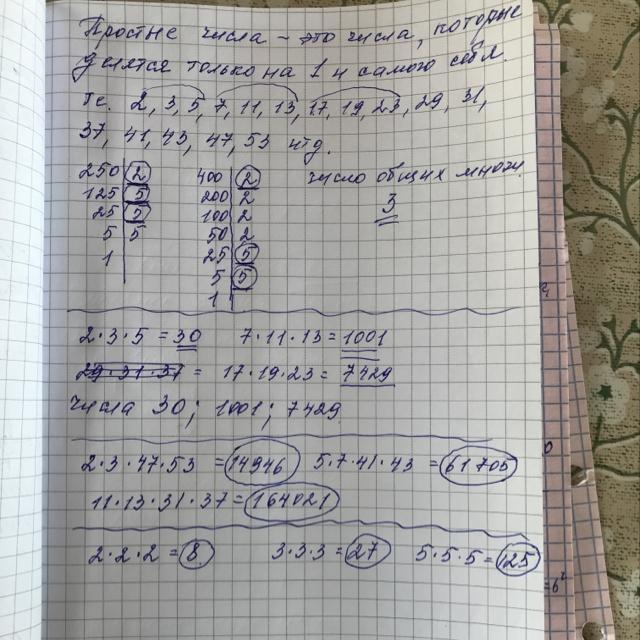 Простые числа - это числа, которые
делятся только на 1 и самого себя.
Те. 2, 3, 5, 7, 11, 13, 17, 19, 23, 29, 31,
37, 41, 43, 47, 53 итд.
250 2 400 2 число общих множ.
125 5 200 2 3
25 5 100 2
5 5 50 2
1 25 5
5 5
1
2·3·5 = 30 7·11·13 = 1001
29·31·37 = 17·19·23 = 7429
числа 30; 1001; 7429
2·3·47·53 = 14946 5·7·41·43 = 61705
11·13·31·37 = 164021
2·2·2 = 8 3·3·3 = 27 5·5·5 = 125